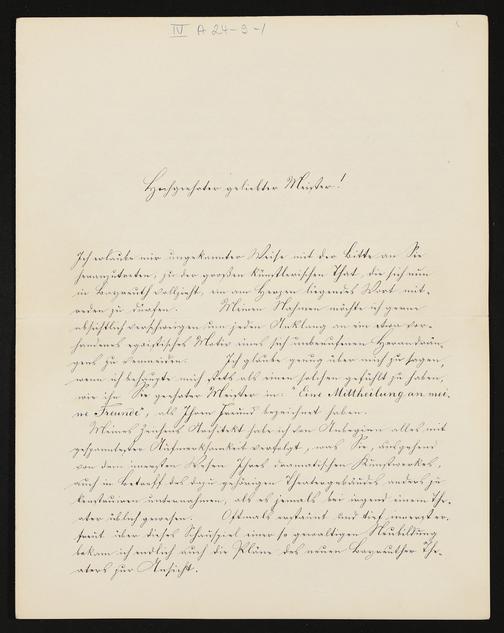 IV A 24-3-1
Hochgeehrter geliebter Meister!
Ich erlaube mir ungekannter Weise mit der Bitte an Sie
heranzutreten, zu der großen künstlerischen That, die sich nun
in Bayreuth vollzieht, ein am Herzen liegendes Wort mit-
reden zu dürfen. Meinen Nahmen möchte ich gerne
absichtlich verschweigen um jeden Anklang an ein etwa vor-
handenes egoistisches Motiv eines sich unberufenen Herandrän-
gens zu vermeiden. Ich glaube genug über mich zu sagen,
wenn ich behaupte mich stets als einen solchen gefühlt zu haben,
wie ihn Sie geehrter Meister in: "Eine Mittheilung an mei-
ne Freunde", als Ihren Freund bezeichnet haben.
Meines Zeichens Architekt habe ich von Anbeginn alles mit
gespanntester Aufmerksamkeit verfolgt, was Sie, ausgehend
von dem innersten Wesen Ihres dramatischen Kunstwerkes,
auch in Betreff des dazu gehörigen Theatergebäudes anders zu
construiren unternahmen, als es jemals bei irgend einem The-
ater üblich gewesen. Oftmals erstaunt und tief innerst er-
freut über dieses Schauspiel einer so gewaltigen Neubildung
bekam ich endlich auch die Pläne des neuen Bayreuther The-
aters zur Ansicht.